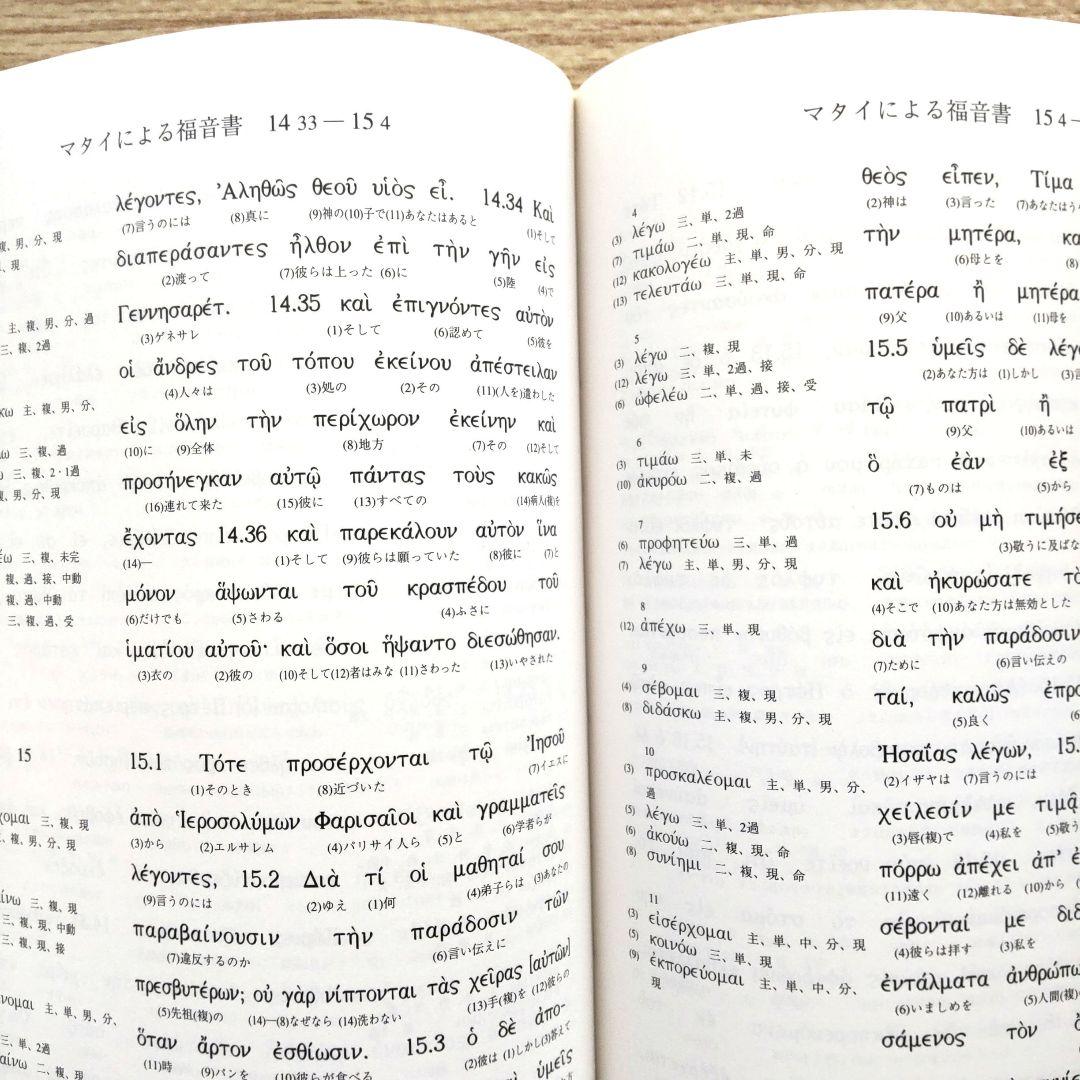 マタイによる福音書 14 33 — 15 4
λέγοντες, Ἀληθῶς θεοῦ υἱὸς εἶ. 14.34 Καὶ
(7)言うのには (8)真に (9)神の(10)子で(11)あなたはあると (1)そして
διαπεράσαντες ἦλθον ἐπὶ τὴν γῆν εἰς
(2)渡って (7)彼らは上った (6)に (5)陸 (4)で
Γεννησαρέτ. 14.35 καὶ ἐπιγνόντες αὐτὸν
(3)ゲネサレ (1)そして (6)認めて (5)彼を
οἱ ἄνδρες τοῦ τόπου ἐκείνου ἀπέστειλαν
(4)人々は (3)処の (2)その (11)(人を)遣わした
εἰς ὅλην τὴν περίχωρον ἐκείνην καὶ
(10)に (9)全体 (8)地方 (7)その (12)そして
προσήνεγκαν αὐτῷ πάντας τοὺς κακῶς
(16)連れて来た (15)彼に (13)すべての (14)病人(複)を
ἔχοντας 14.36 καὶ παρεκάλουν αὐτὸν ἵνα
(14)— (1)そして (9)彼らは願っていた (8)彼に (7)と
μόνον ἅψωνται τοῦ κρασπέδου τοῦ
(6)だけでも (5)さわる (4)ふさに
ἱματίου αὐτοῦ· καὶ ὅσοι ἥψαντο διεσώθησαν.
(3)衣の (2)彼の (10)そして(12)者はみな (11)さわった (13)いやされた
15 15.1 Τότε προσέρχονται τῷ Ἰησοῦ
(1)そのとき (8)近づいた (7)イエスに
ἀπὸ Ἱεροσολύμων Φαρισαῖοι καὶ γραμματεῖς
(3)から (2)エルサレム (4)パリサイ人ら (5)と (6)学者らが
λέγοντες, 15.2 Διὰ τί οἱ μαθηταί σου
(9)言うのには (2)ゆえ (1)何 (4)弟子らは (3)あなたの
παραβαίνουσιν τὴν παράδοσιν τῶν
(7)違反するのか (6)言い伝えに
πρεσβυτέρων; οὐ γὰρ νίπτονται τὰς χεῖρας [αὐτῶν]
(5)先祖(複)の (14)—(8)なぜなら (14)洗わない (13)手(複)を (12)彼らの
ὅταν ἄρτον ἐσθίωσιν. 15.3 ὁ δὲ ἀπο-
(11)時 (9)パンを (10)彼らが食べる (2)彼は (1)しかし(3)答えて
ὑμεῖς
主、複、男、分、過
三、複、2過
主、複、男、分、
三、複、過
三、複、2・1過
複、男、分、現
三、複、未完
複、過、接、中動
複、過、中動
三、複、過、受
三、複、現
複、男、分、現
三、複、現
三、複、現、中動
三、複、現、接
主、単、男、分、
三、単、2過
二、複、現
マタイによる福音書 15 4—
4
(3) λέγω 三、単、2過
(7) τιμάω 二、単、現、命
(12) κακολογέω 主、単、男、分、現
(13) τελευτάω 三、単、現、命
5
(3) λέγω 二、複、現
(12) λέγω 三、単、2過、接
(6) ὠφελέω 二、単、過、接、受
6
(3) τιμάω 三、単、未
(10) ἀκυρόω 二、複、過
7
(6) προφητεύω 三、単、過
(7) λέγω 主、単、男、分、現
8
(12) ἀπέχω 三、単、現
9
(4) σέβομαι 三、複、現
(8) διδάσκω 主、複、男、分、現
10
(3) προσκαλέομαι 主、単、男、分、
過
(5) λέγω 三、単、2過
(6) ἀκούω 二、複、現、命
(8) συνίημι 二、複、現、命
11
(3) εἰσέρχομαι 主、単、中、分、現
(5) κοινόω 三、単、現
(9) ἐκπορεύομαι 主、単、中、分、
現
θεὸς εἶπεν, Τίμα
(2)神は (3)言った (7)あなたはうや
τὴν μητέρα, κα
(6)母とを (8)
πατέρα ἢ μητέρα
(9)父 (10)あるいは (11)母を
15.5 ὑμεῖς δὲ λέγ
(2)あなた方は (1)しかし (3)
τῷ πατρὶ ἢ
(9)父 (10)あるいは
ὃ ἐὰν ἐξ
(7)ものは (5)から
15.6 οὐ μὴ τιμήσε
(3)敬うに及ばな
καὶ ἠκυρώσατε τὸ
(4)そこで (10)あなた方は無効とした
διὰ τὴν παράδοσιν
(7)ために (6)言い伝えの
ταί, καλῶς ἐπρο
(5)良く
Ἠσαΐας λέγων, 15.
(2)イザヤは (7)言うのには
χείλεσίν με τιμᾷ
(3)唇(複)で (4)私を (5)敬う
πόρρω ἀπέχει ἀπ' ἐ
(11)遠く (12)離れる (10)から
σέβονταί με διδ
(4)彼らは拝す (3)私を
ἐντάλματα ἀνθρώπω
(6)いましめを (5)人間(複)
σάμενος τὸν